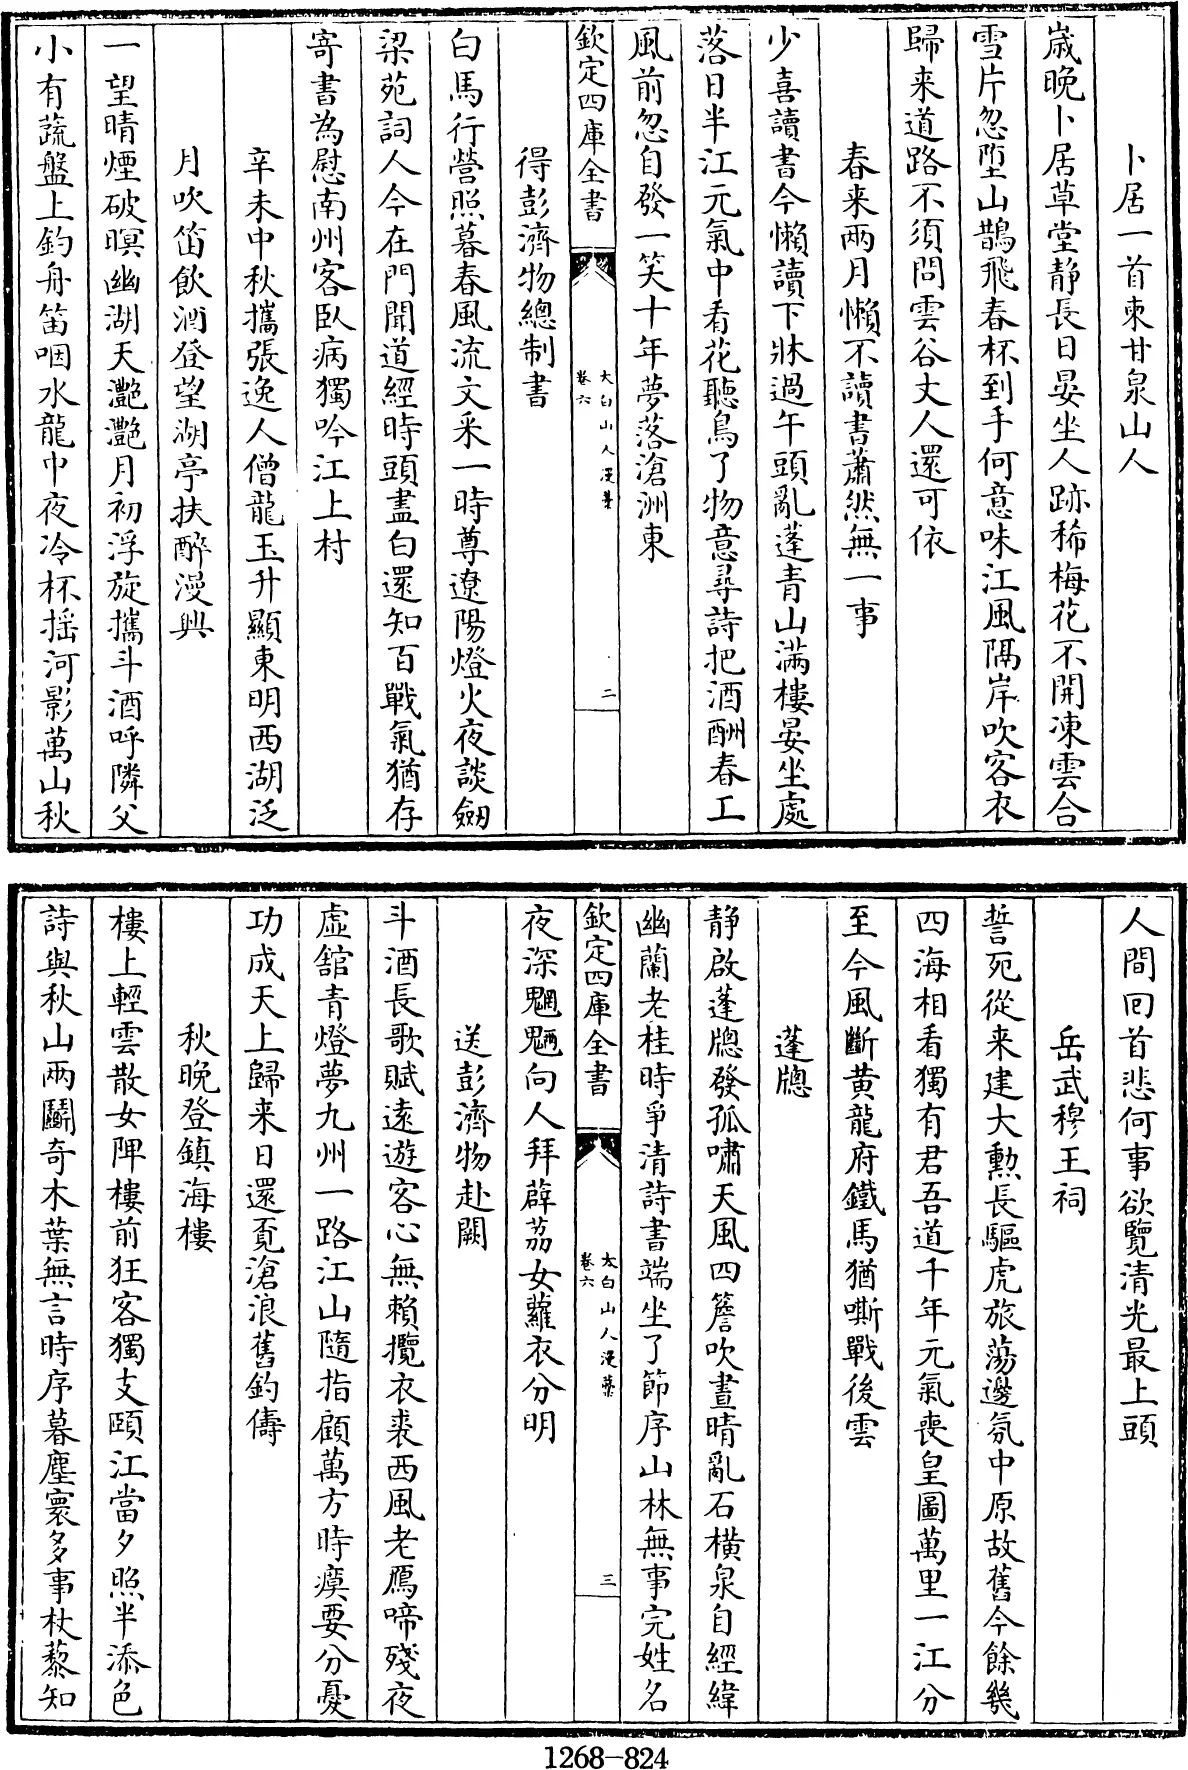 卜居一首柬甘泉山人
歳晚卜居草堂靜長日晏坐人跡稀梅花不開凍雲合
雪片忽墮山鵲飛春杯到手何意味江風隔岸吹客衣
歸来道路不須問雲谷丈人還可依
春来兩月懶不讀書蕭然無一事
少喜讀書今懶讀下牀過午頭亂蓬青山滿樓晏坐處
落日半江元氣中看花聽鳥了物意尋詩把酒酬春工
風前忽自發一笑十年夢落滄洲東
欽定四庫全書
太白山人漫藁
卷六
二
得彭濟物總制書
白馬行營照暮春風流文采一時尊遼陽燈火夜談劒
梁苑詞人今在門聞道經時頭盡白還知百戰氣猶存
寄書為慰南州客臥病獨吟江上村
辛未中秋攜張逸人僧龍玉升顯東明西湖泛
月吹笛飲酒登望湖亭扶醉漫興
一望晴煙破暝幽湖天灔灔月初浮旋攜斗酒呼隣父
小有蔬盤上釣舟笛咽水龍中夜冷杯揺河影萬山秋
人間回首悲何事欲覽清光最上頭
岳武穆王祠
誓死從来建大勲長驅虎旅蕩邊氛中原故舊今餘幾
四海相看獨有君吾道千年元氣喪皇圖萬里一江分
至今風斷黄龍府鐵馬猶嘶戰後雲
蓬牕
靜啟蓬牕發孤嘯天風四簷吹晝晴亂石橫泉自經緯
幽蘭老桂時爭清詩書端坐了節序山林無事完姓名
欽定四庫全書
太白山人漫藁
卷六
三
夜深魍魎向人拜薜荔女蘿衣分明
送彭濟物赴闕
斗酒長歌賦遠遊客心無賴攬衣裘西風老鴈啼殘夜
虛舘青燈夢九州一路江山隨指顧萬方時瘼要分憂
功成天上歸来日還覔滄浪舊釣儔
秋晚登鎮海樓
樓上輕雲散女陴樓前狂客獨支頤江當夕照半添色
詩與秋山兩鬭奇木葉無言時序暮塵寰多事杖藜知
1268-824